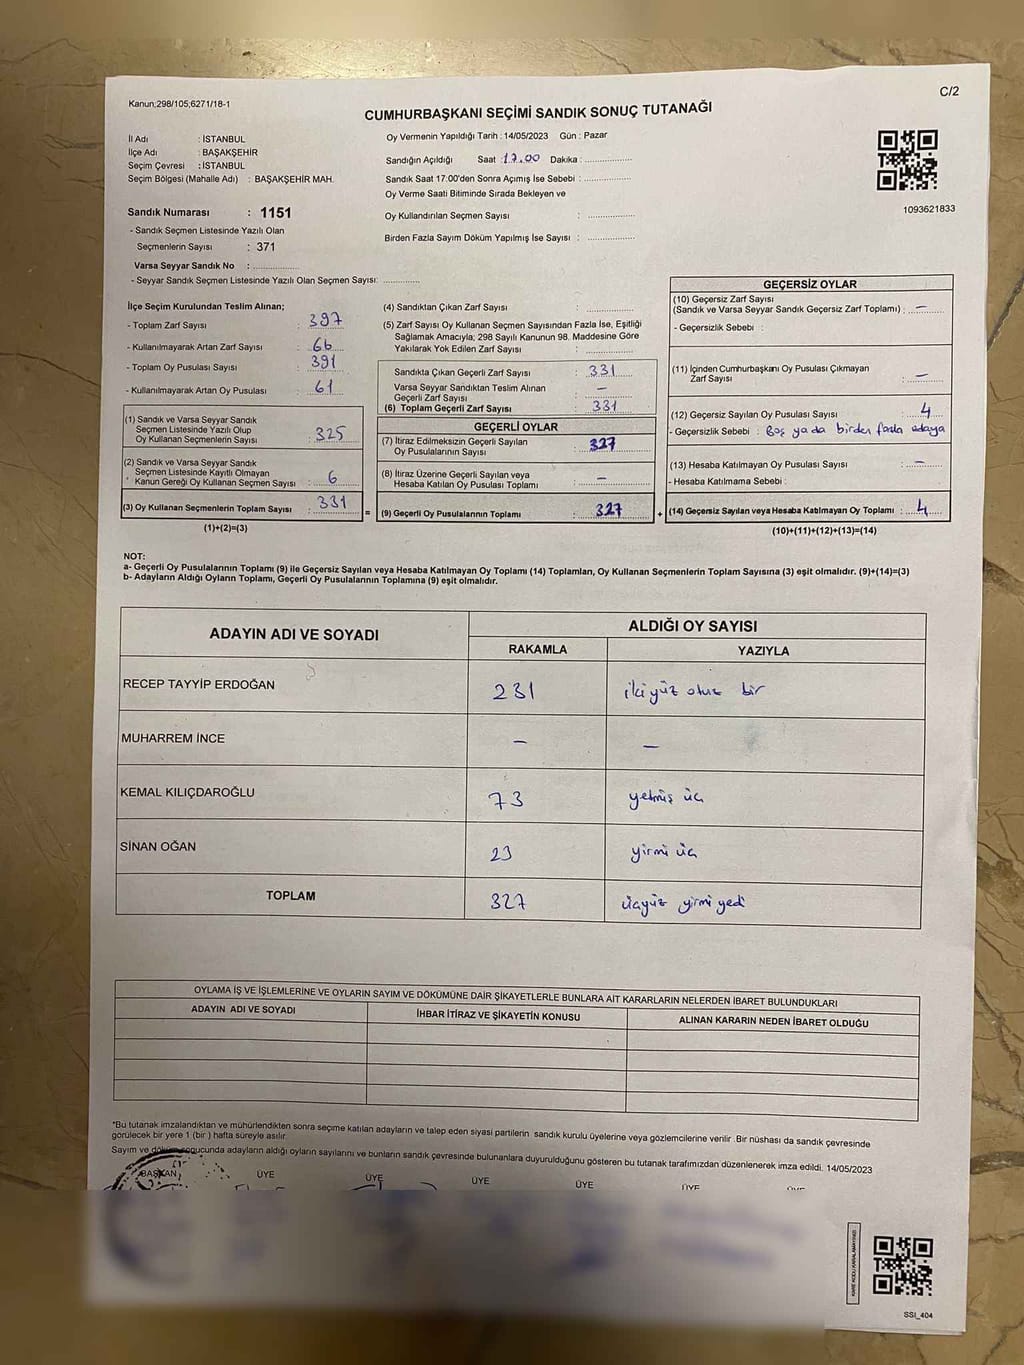 C/2
Kanun;298/105;6271/18-1
CUMHURBAŞKANI SEÇİMİ SANDIK SONUÇ TUTANAĞI
İl Adı : İSTANBUL
İlçe Adı : BAŞAKŞEHİR
Seçim Çevresi : İSTANBUL
Seçim Bölgesi (Mahalle Adı) : BAŞAKŞEHİR MAH.
Sandık Numarası : 1151
- Sandık Seçmen Listesinde Yazılı Olan
Seçmenlerin Sayısı : 371
Varsa Seyyar Sandık No : ..................
- Seyyar Sandık Seçmen Listesinde Yazılı Olan Seçmen Sayısı: ..............
Oy Vermenin Yapıldığı Tarih : 14/05/2023 Gün : Pazar
Sandığın Açıldığı Saat : 17.00 Dakika : ..................
Sandık Saat 17:00'den Sonra Açımış İse Sebebi : ..................
Oy Verme Saati Bitiminde Sırada Bekleyen ve
Oy Kullandırılan Seçmen Sayısı : ..................
Birden Fazla Sayım Döküm Yapılmış İse Sayısı : ..................
1093621833
İlçe Seçim Kurulundan Teslim Alınan;
- Toplam Zarf Sayısı : 397
- Kullanılmayarak Artan Zarf Sayısı : 66
- Toplam Oy Pusulası Sayısı : 391
- Kullanılmayarak Artan Oy Pusulası : 61
(1) Sandık ve Varsa Seyyar Sandık
Seçmen Listesinde Yazılı Olup
Oy Kullanan Seçmenlerin Sayısı : 325
(2) Sandık ve Varsa Seyyar Sandık
Seçmen Listesinde Kayıtlı Olmayan
Kanun Gereği Oy Kullanan Seçmen Sayısı : 6
(3) Oy Kullanan Seçmenlerin Toplam Sayısı : 331
(1)+(2)=(3)
(4) Sandıktan Çıkan Zarf Sayısı : ..................
(5) Zarf Sayısı Oy Kullanan Seçmen Sayısından Fazla İse, Eşitliği
Sağlamak Amacıyla; 298 Sayılı Kanunun 98. Maddesine Göre
Yakılarak Yok Edilen Zarf Sayısı : ..................
Sandıkta Çıkan Geçerli Zarf Sayısı : 331
Varsa Seyyar Sandıktan Teslim Alınan
Geçerli Zarf Sayısı : –
(6) Toplam Geçerli Zarf Sayısı : 331
GEÇERLİ OYLAR
(7) İtiraz Edilmeksizin Geçerli Sayılan
Oy Pusulalarının Sayısı : 327
(8) İtiraz Üzerine Geçerli Sayılan veya
Hesaba Katılan Oy Pusulası Toplamı : –
= (9) Geçerli Oy Pusulalarının Toplamı : 327 +
GEÇERSİZ OYLAR
(10) Geçersiz Zarf Sayısı
(Sandık ve Varsa Seyyar Sandık Geçersiz Zarf Toplamı) : –
- Geçersizlik Sebebi :
(11) İçinden Cumhurbaşkanı Oy Pusulası Çıkmayan
Zarf Sayısı : –
(12) Geçersiz Sayılan Oy Pusulası Sayısı : 4
- Geçersizlik Sebebi : Boş ya da birden fazla adaya
(13) Hesaba Katılmayan Oy Pusulası Sayısı : –
- Hesaba Katılmama Sebebi :
(14) Geçersiz Sayılan veya Hesaba Katılmayan Oy Toplamı : 4
(10)+(11)+(12)+(13)=(14)
NOT:
a- Geçerli Oy Pusulalarının Toplamı (9) ile Geçersiz Sayılan veya Hesaba Katılmayan Oy Toplamı (14) Toplamları, Oy Kullanan Seçmenlerin Toplam Sayısına (3) eşit olmalıdır. (9)+(14)=(3)
b- Adayların Aldığı Oyların Toplamı, Geçerli Oy Pusulalarının Toplamına (9) eşit olmalıdır.
ADAYIN ADI VE SOYADI ALDIĞI OY SAYISI
RAKAMLA YAZIYLA
RECEP TAYYİP ERDOĞAN 231 ikiyüz otuz bir
MUHARREM İNCE – –
KEMAL KILIÇDAROĞLU 73 yetmiş üç
SİNAN OĞAN 23 yirmi üç
TOPLAM 327 üçyüz yirmi yedi
OYLAMA İŞ VE İŞLEMLERİNE VE OYLARIN SAYIM VE DÖKÜMÜNE DAİR ŞİKAYETLERLE BUNLARA AİT KARARLARIN NELERDEN İBARET BULUNDUKLARI
ADAYIN ADI VE SOYADI İHBAR İTİRAZ VE ŞİKAYETİN KONUSU ALINAN KARARIN NEDEN İBARET OLDUĞU
*Bu tutanak imzalandıktan ve mühürlendikten sonra seçime katılan adayların ve talep eden siyasi partilerin sandık kurulu üyelerine veya gözlemcilerine verilir. Bir nüshası da sandık çevresinde
görülecek bir yere 1 (bir ) hafta süreyle asılır.
Sayım ve döküm sonucunda adayların aldığı oyların sayılarını ve bunların sandık çevresinde bulunanlara duyurulduğunu gösteren bu tutanak tarafımızdan düzenlenerek imza edildi. 14/05/2023
BAŞKAN ÜYE ÜYE ÜYE ÜYE ÜYE ÜYE
SSI_404